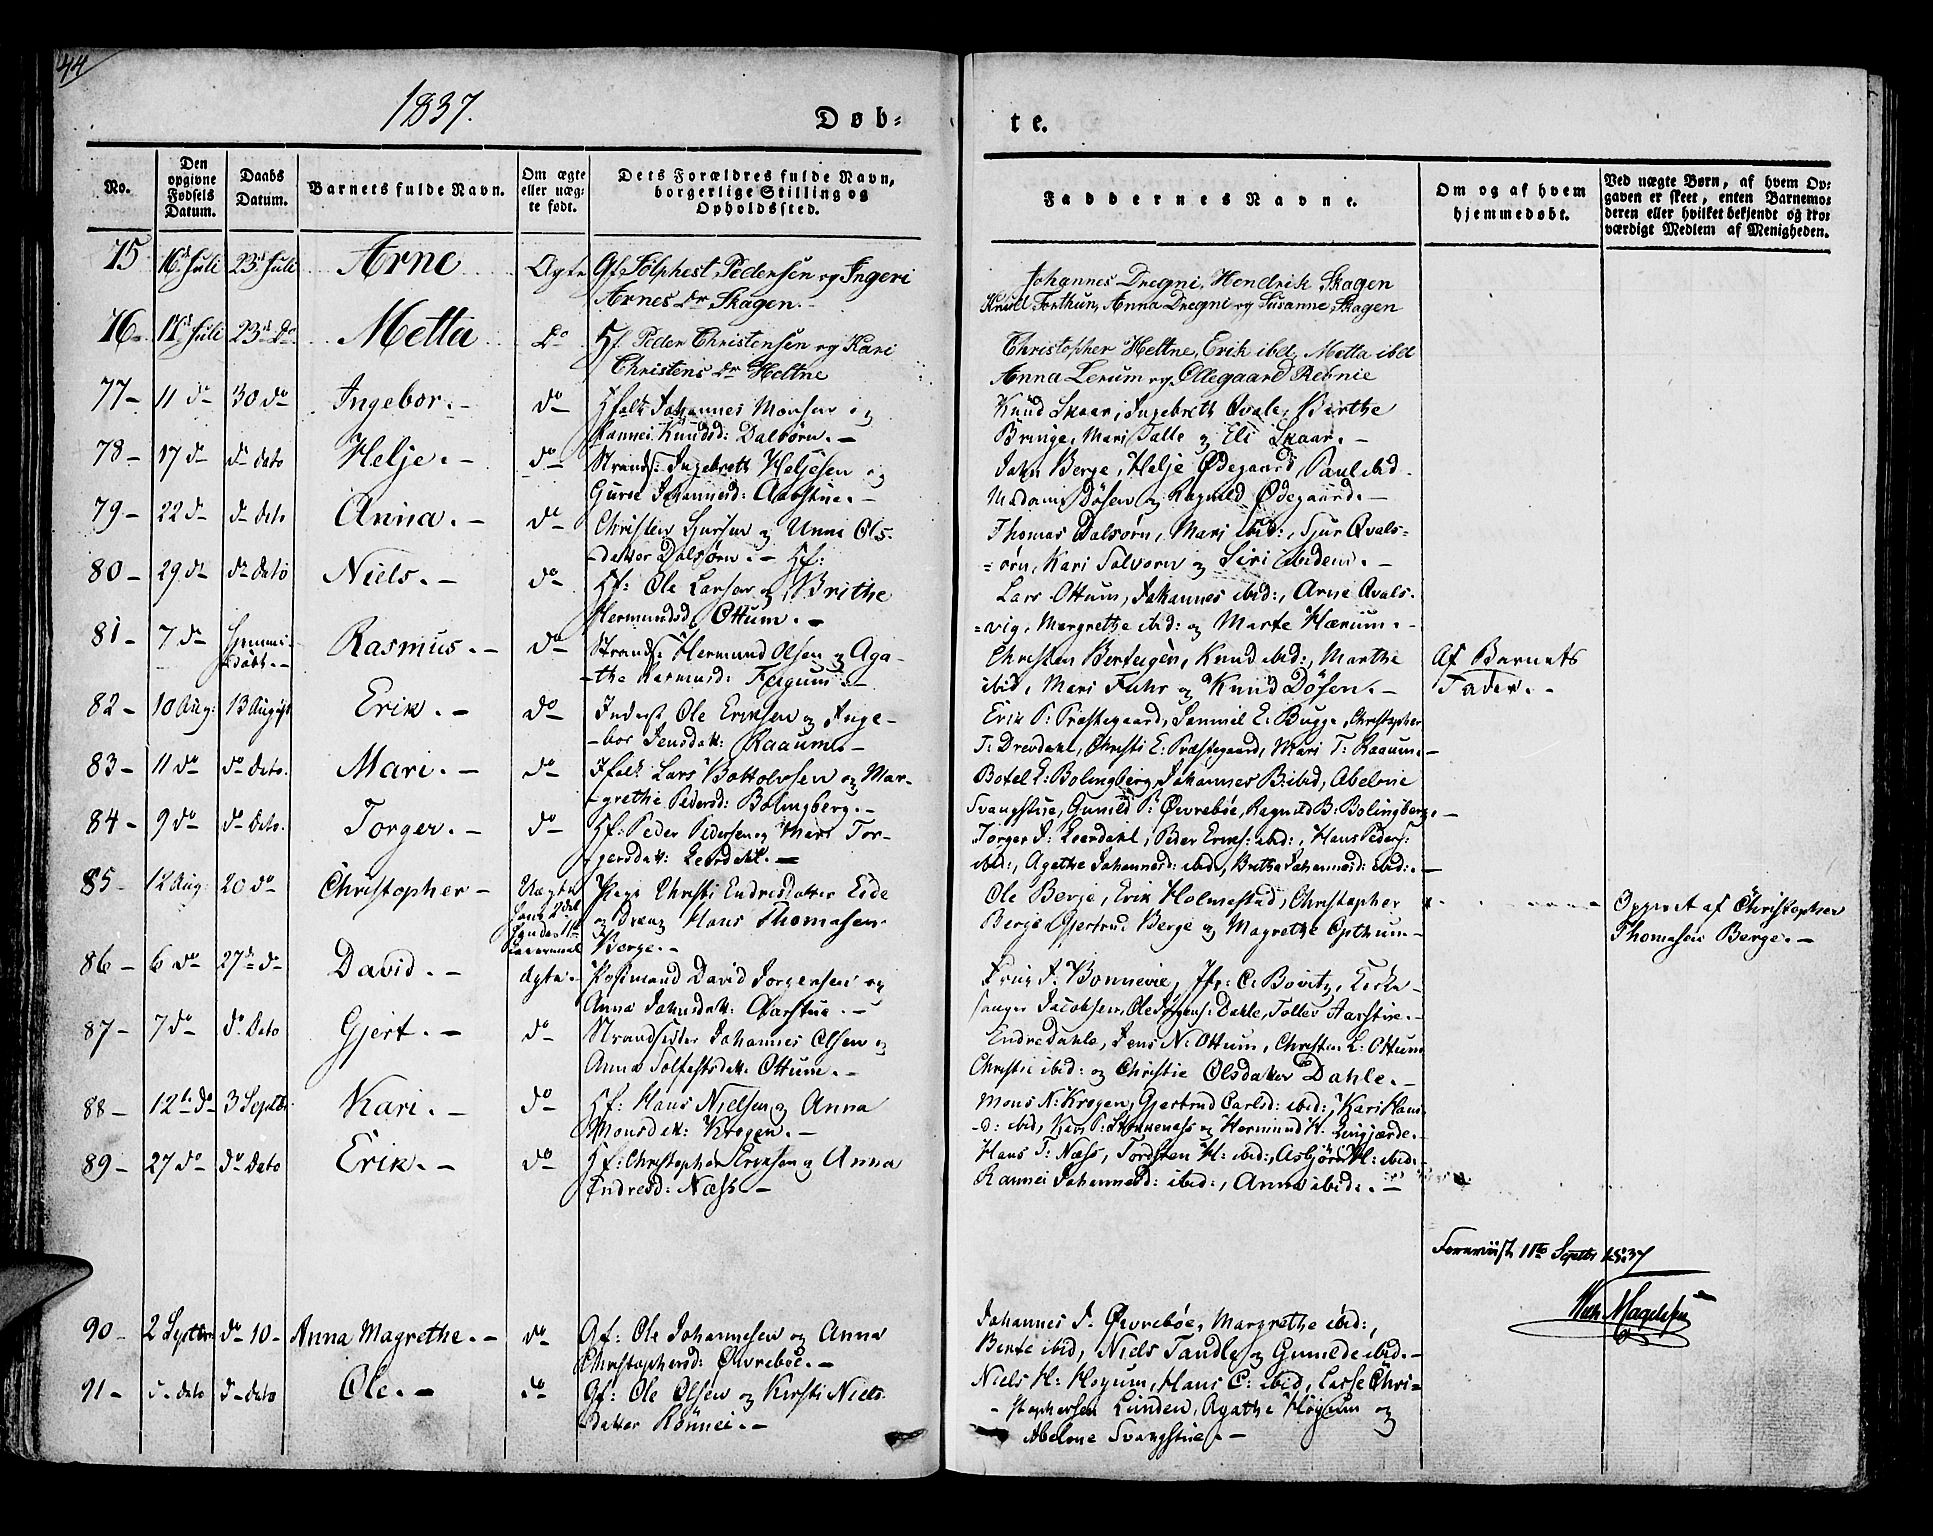 44
1837.
Døb-
te.
No.
Den opgivne Fødsels Datum.
Daabs Datum.
Barnets fulde Navn.
Om ægte eller uægte født.
Dets Forældres fulde Navn, borgerlige Stilling og Opholdssted.
Faddernes Navne.
Om og af hvem hjemmedøbt.
Ved uægte Børn, af hvem Opgaven er skeet, enten Barnemoderen eller hvilket bekjendt og troværdigt Medlem af Menigheden.
75 16d Juli 23d Juli Arne Ægte Gf Tolphest Pedersen og Ingeri
Arnes Dr Skagen.
Johannes Dregni, Hendrik Skagen
Knud Forthun, Anna Dregni og Susanne Skagen
76- Juli 23d Do Metta Do Hf. Peder Christensen og Kari
Christens Dr Heltne
Christopher Heltne, Erik ibd, Metta ibd
Anna Lerum og Ollegaard Rebnie
77- 11 do 30 do Ingebor.- do Johannes Monsen og
Rannei Knudsd: Dalsørn.-
Knud Skaar, Ingebreth Qvale, Berthe
Bringe, Mari Talle og Eli Skaar.-
78- 17 d do dato Helje.- do Strands: Ingebreth Heljesen og
Guro Johannesd: Aabstue.-
John Berge, Helje Ødegaard, Paul ibd.
Madam Døsen og Ragnild Ødegaard.-
79- 22 d d dato Anna.- do Christen og Unni Ols-
datter Dalsørn.-
Thomas Dalsørn, Mari ibid:, Sjur Qvals-
=ørn, Kari Solvorn og Siri ibidem.-
80- 29 d do dato Niels.- do Hf: Ole Larsen og Brithe
Hermundsd. Ottum.-
Lars Ottum, Johannes ibid:, Arne Qvals-
=vig, Margrethe ibid: og Marte Hærum.-
81- 7 d Hjemmedøbt.- Rasmus.- do Strands: Hermund Olsen og Aga-
the Rasmusd: Fergum.-
Christen Bertergen, Knud ibid:, Marthe
ibid, Mari Fuhr og Knud Døsen.-
Af Barnets
Fader.-
82- 10 Aug: 13 August Erik.- do Inderst Ole Eriksen og Inge-
bor Jensdatt: Raaum.-
Erik P: Præstegaard, Samuel E: Bugge, Christopher
T: Drevdahl, Christi E: Præstegaard, Mari T: Raaum.-
83- 11 do do Dato. Mari.- do Lars Bottolvsen og Mar-
grethe Pedersd: Bolingberg.-
Botel L: Bolingberg, Johannes B: ibid, Abelone
Svangstue, Gunild P: Øvrebøe, Ragnild B: Bolingberg.-
84- 9 do do Dato. Torger.- do Hf: Peder Pedersen og Mari Tor-
gersdatt: Leerdahl.-
Torger J: Leerdahl, Peder Eriks: ibid:, Hans Peders:
ibid:, Agathe Johannesd: ibid, Brithe Johannesd: ibid:.-
85- 12 Aug 20 do Christopher- Uægte Pige Christi Endresdatter Eide
og Dreng Hans Thomasen
Berge.-
Ole Berge, Erik Holmestad, Christopher
Berge Gjertrud Berge og Magrethe Opthun-
Opgivet af Christopher
Thomasen Berge.-
86- 6 do 27de d David.- Ægte. Postmand David Jørgensen og
Anna Johnsdatt: Aarstue.-
J. Bonnevie, Jfr: C. Bovitz, Kirke-
sanger Jacobsen, Ole Jørgens: Dahle, Tollev Aarstue.-
87- 7 do do Dato Gjert.- do Strandsidder Johannes Olsen og
Anna Tolfestsdatt: Ottum.-
Endre Dahle, Jens N: Ottum, Christen L: Ottum
Christie ibid: og Christie Olsdatter Dahle.-
88- 12te do 3 Septbr Kari.- do Hf: Hans Nielsen og Anna
Monsdatt: Krogen.-
Mons N: Krogen, Gjertrud Carlsd: ibid:, Kari Hans-
d: ibid, Kari P: og Hermund H. Lingjærde.-
89- 27 do do Dato Erik.- do Hf: Christopher Eriksen og Anna
Endresd: Næss.-
Hans T: Næss, Torsten H: ibid:, Asbjørn H: ibid:
Rannei Johannesd: ibid:, Anna ibid:.-
Foreviist 11te Septbr 1837
Magelssen
90- 2 Septbr do 10- Anna Magrethe.- do Gf: Ole Johannesen og Anna
Christophersd: Øvrebøe.-
Johannes J. Øvrebøe, Margrethe ibid:,
Bente ibid, Niels Tandle og Gunilde ibid.-
91- d dato d dato Ole.- do Gf: Ole Olsen og Kirsti Niels-
datter Rønnei.-
Niels H: Høyum, Hans C: ibid, Lasse Chri=
-stophersen Linden, Agathe Høyum og
Abelone Svangstue.-